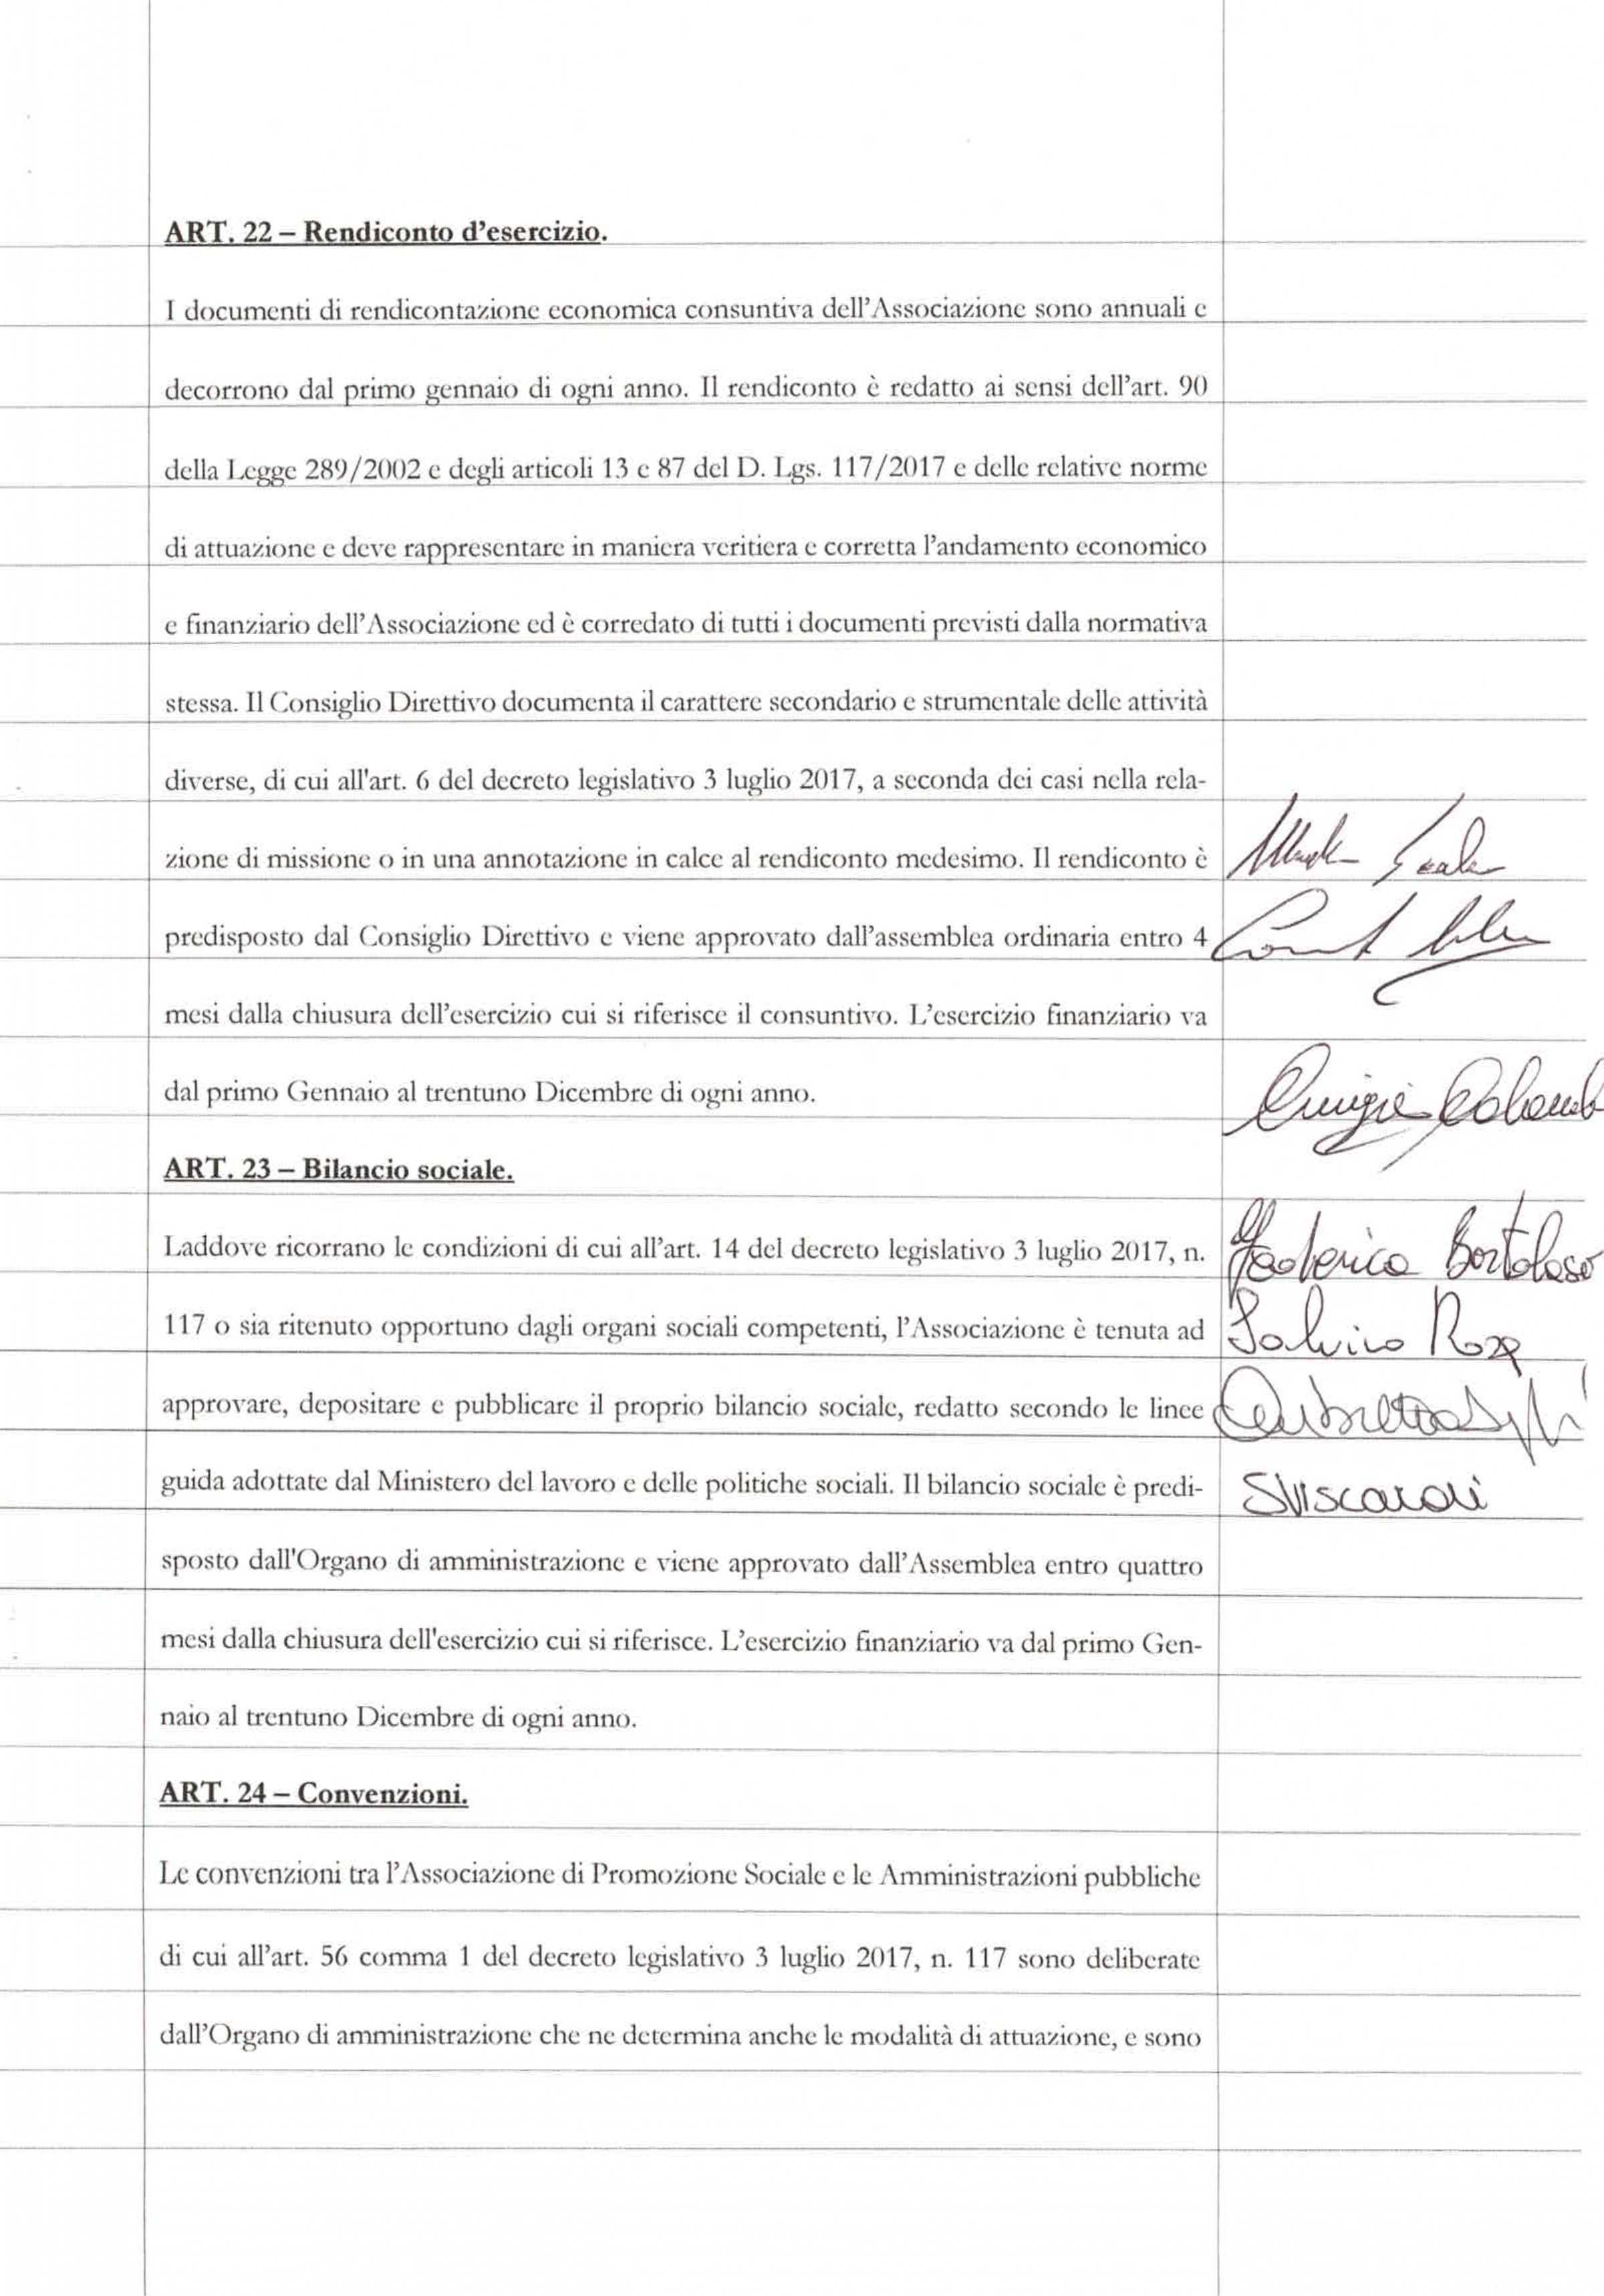 ART. 22 – Rendiconto d'esercizio.
I documenti di rendicontazione economica consuntiva dell'Associazione sono annuali e
decorrono dal primo gennaio di ogni anno. Il rendiconto è redatto ai sensi dell'art. 90
della Legge 289/2002 e degli articoli 13 e 87 del D. Lgs. 117/2017 e delle relative norme
di attuazione e deve rappresentare in maniera veritiera e corretta l'andamento economico
e finanziario dell'Associazione ed è corredato di tutti i documenti previsti dalla normativa
stessa. Il Consiglio Direttivo documenta il carattere secondario e strumentale delle attività
diverse, di cui all'art. 6 del decreto legislativo 3 luglio 2017, a seconda dei casi nella rela-
zione di missione o in una annotazione in calce al rendiconto medesimo. Il rendiconto è
predisposto dal Consiglio Direttivo e viene approvato dall'assemblea ordinaria entro 4
mesi dalla chiusura dell'esercizio cui si riferisce il consuntivo. L'esercizio finanziario va
dal primo Gennaio al trentuno Dicembre di ogni anno.
ART. 23 – Bilancio sociale.
Laddove ricorrano le condizioni di cui all'art. 14 del decreto legislativo 3 luglio 2017, n.
Federico Bortoloso
117 o sia ritenuto opportuno dagli organi sociali competenti, l'Associazione è tenuta ad
approvare, depositare e pubblicare il proprio bilancio sociale, redatto secondo le linee
guida adottate dal Ministero del lavoro e delle politiche sociali. Il bilancio sociale è predi-
sposto dall'Organo di amministrazione e viene approvato dall'Assemblea entro quattro
mesi dalla chiusura dell'esercizio cui si riferisce. L'esercizio finanziario va dal primo Gen-
naio al trentuno Dicembre di ogni anno.
ART. 24 – Convenzioni.
Le convenzioni tra l'Associazione di Promozione Sociale e le Amministrazioni pubbliche
di cui all'art. 56 comma 1 del decreto legislativo 3 luglio 2017, n. 117 sono deliberate
dall'Organo di amministrazione che ne determina anche le modalità di attuazione, e sono